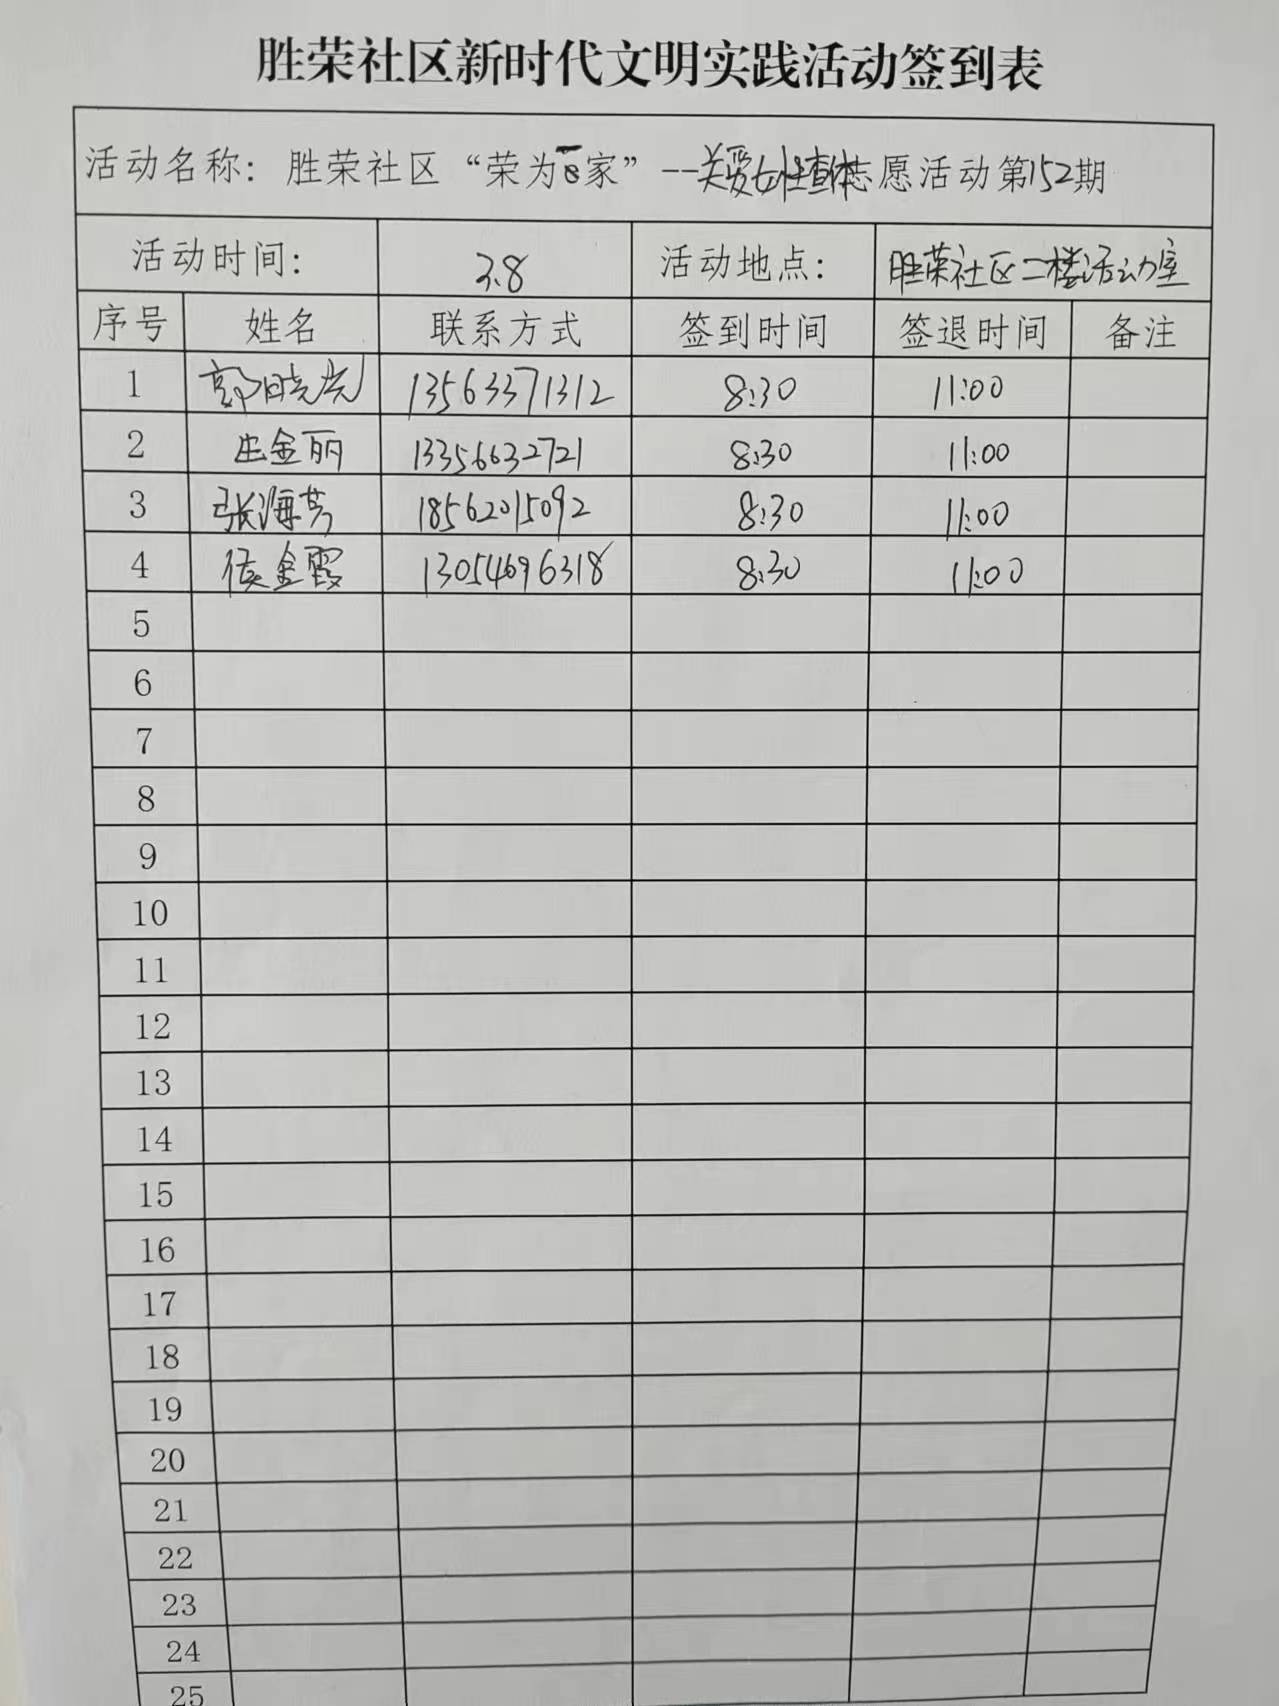 胜荣社区新时代文明实践活动签到表
活动名称：胜荣社区“荣为e家”--关爱女性查体志愿活动第152期
活动时间： 3.8 活动地点： 胜荣社区二楼活动室
序号 姓名 联系方式 签到时间 签退时间 备注
1 郭晓光 13563371312 8:30 11:00
2 庄金丽 13356632721 8:30 11:00
3 张海芳 18562015092 8:30 11:00
4 侯金霞 13054696318 8:30 11:00
5
6
7
8
9
10
11
12
13
14
15
16
17
18
19
20
21
22
23
24
25